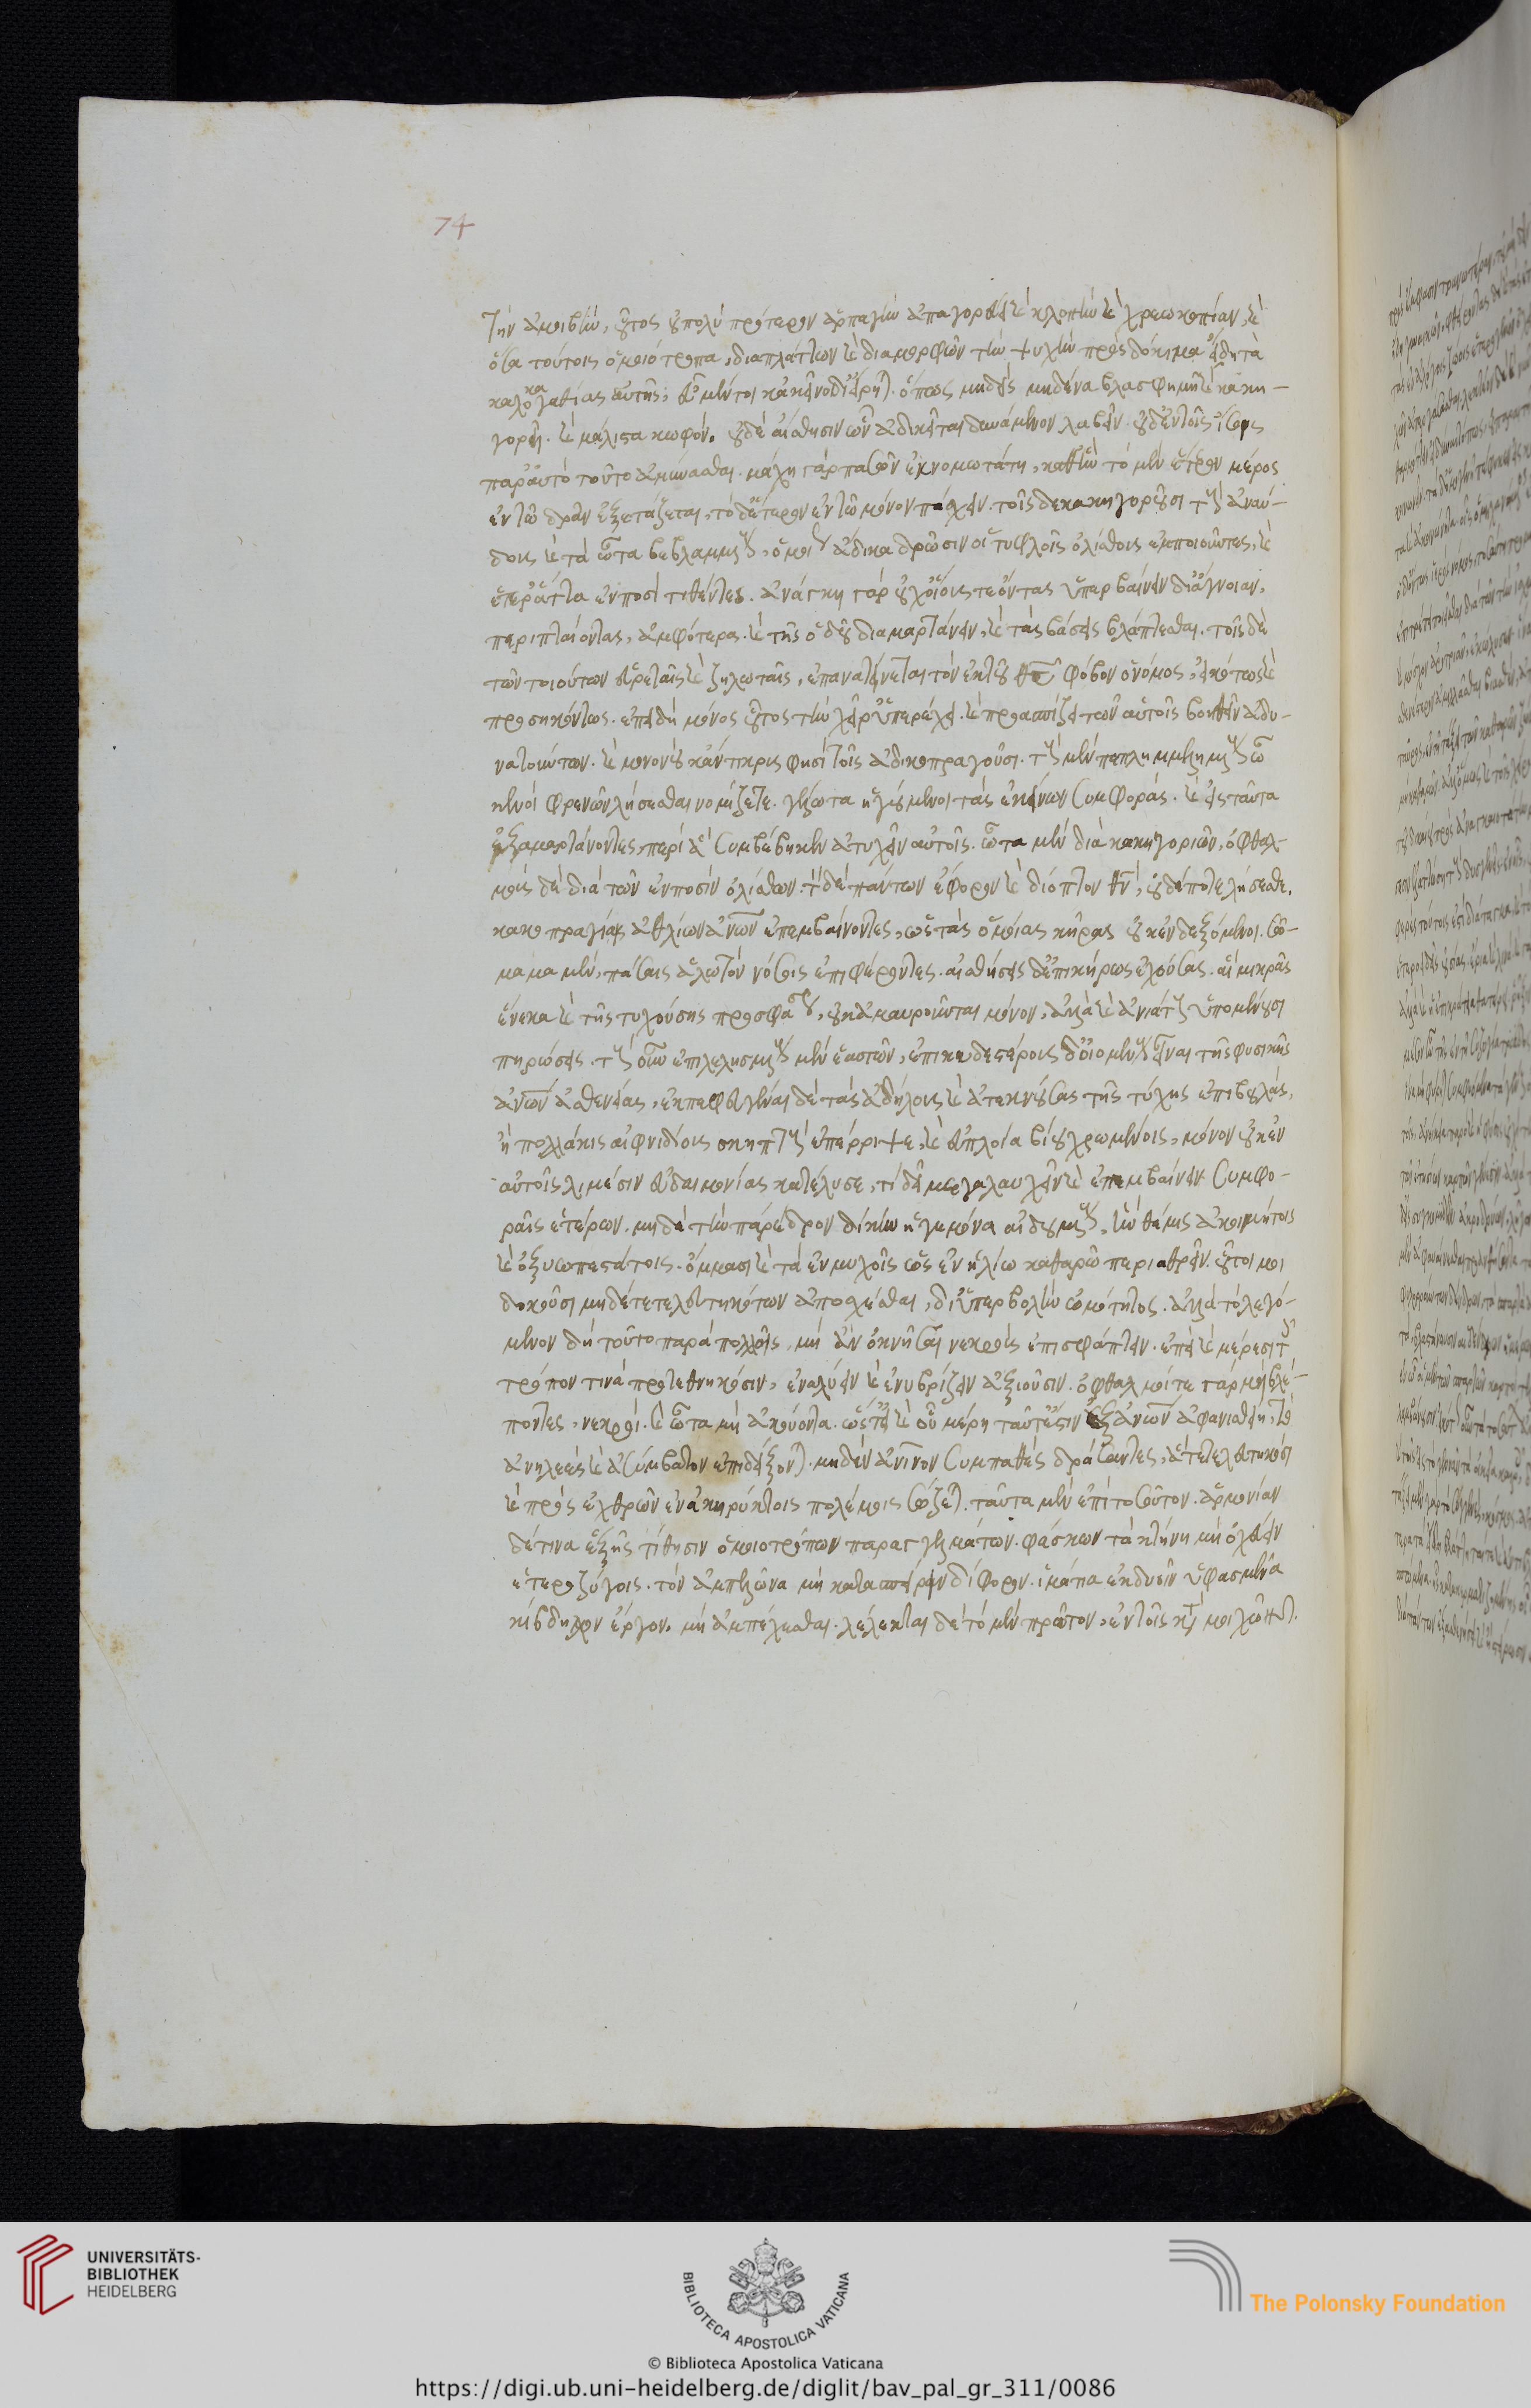 74
Τὴν ἀμοιβὴν, οὗτος οὐ πολὺ πρότερον ἁρπαγὴν ἀπαγορεύει καὶ κλοπὴν καὶ χρεωκοπίαν, καὶ
ὅσα τούτοις ὁμοιότροπα, διαπλάττων καὶ διαμορφῶν τὴν ψυχὴν πρὸς δόκιμα εἴδη τὰ
καλοκαγαθίας αὐτῆς· εὖ μέντοι κἀκεῖνο διείρηται. ὅπως μηδεὶς μηδένα βλασφημῇ καὶ κακη-
γορῇ. καὶ μάλιστα κωφόν. οὐδὲ αἴσθησιν ὧν ἀδικεῖται δυνάμενον λαβεῖν. οὐδ' ἐν τοῖς ἴσοις
παρ' αὐτὸ τοῦτο ἀμύνασθαι. μάχη γὰρ πασῶν ἐκνομωτάτη, καθ' ἣν τὸ μὲν ἕτερον μέρος
ἐν τῶ δρᾶν ἐξετάζεται, τὸ δ' ἕτερον ἐν τῶ μόνον πάσχειν. τοῖς δε κακηγοροῦσι τοὺς ἀναύ-
δους καὶ τὰ ὦτα βεβλαμμένους, ὅμοια ἄδικα δρῶσιν οἱ τυφλοῖς ὀλίσθους ἐμποιοῦντες, καὶ
ἕτερ' ἄττα ἐν ποσὶ τιθέντες. ἀνάγκη γὰρ οὐχ οἵους τε ὄντας ὑπερβαίνειν δι' ἄγνοιαν,
περιπταίοντας, ἀμφότερα. καὶ τῆς ὁδοῦ διαμαρτάνειν, καὶ τὰς βάσεις βλάπτεσθαι. τοῖς δὲ
τῶν τοιούτων εὑρεταῖς καὶ ζηλωταῖς, ἐπανατείνεται τὸν ἐκ τοῦ θεοῦ φόβον ὁ νόμος, εἰκότως καὶ
προσηκόντως. ἐπειδὴ μόνος οὗτος τὴν χεῖρ' ὑπερέχει. καὶ προασπίζει τῶν αὑτοῖς βοηθεῖν ἀδυ-
νατούντων. καὶ μονονοὺ κἄντικρυς φησὶ τοῖς ἀδικοπραγοῦσι. τοὺς μὲν πεπλημμελημένους ὦ
κενοὶ φρενῶν λήσεσθαι νομίζετε. γέλωτα ἡγούμενοι τὰς ἐκείνων συμφοράς. καὶ εἰς ταῦτα
ἐξαμαρτάνοντες, περὶ ἃ συμβέβηκεν ἀτυχεῖν αὐτοῖς. ὦτα μὲν διὰ κακηγοριῶν, ὀφθαλ-
μοὺς δὲ διὰ τῶν ἐν ποσὶν ὀλίσθων. τὸν δὲ πάντων ἔφορον καὶ δίοπτον θεὸν, οὐδέποτε λήσεσθε.
κακοπραγίαις ἀθλίων ἀνθρώπων ἐπεμβαίνοντες, ὡς τὰς ὁμοίας κῆρας οὐκ ἐνδεξόμενοι. σῶ-
μα μὲν, πάσαις ἁλωτὸν νόσοις ἐπιφέροντες. αἰσθήσεις δ' ἐπικήρως ἐχούσας. αἳ μικρᾶς
ἕνεκα καὶ τῆς τυχούσης προφάσεως, οὐκ ἀμαυροῦνται μόνον, ἀλλὰ καὶ ἀνιάτους ὑπομένουσι
πηρώσεις. τοὺς οὖν ἐπιλελησμένους μὲν ἑαυτῶν, ἐπικυδεστέρους δ' οἰομένους εἶναι τῆς φυσικῆς
ἀνθρώπων ἀσθενείας, ἐκπεφευγέναι δὲ τὰς ἀδήλους καὶ ἀτεκμάρτους τῆς τύχης ἐπιβουλὰς,
ἣ πολλάκις αἰφνιδίους σκηπτοὺς ἐπέρριψε, καὶ εὐπλοία βίου χρωμένοις, μόνον οὐκ ἐν
αὐτοῖς λιμέσιν εὐδαιμονίας κατέκλυσε, τί δεῖ μεγαλαυχεῖν καὶ ἐπεμβαίνειν συμφο-
ραῖς ἑτέρων. μηδὲ τὴν πάρεδρον δίκην ἡγεμόνα αἰδουμένους, ἣν θέμις ἀκοιμήτοις
καὶ ὀξυωπεστάτοις. ὄμμασι καὶ τὰ ἐν μυχοῖς ὡς ἐν ἡλίω καθαρῶ περιαθρεῖν. οὗτοί μοι
δοκοῦσι μηδέ τετελευτηκότων ἀποσχέσθαι, δι' ὑπερβολὴν ὠμότητος. ἀλλὰ τὸ λεγό-
μενον δὴ τοῦτο παρὰ πολλοῖς, μὴ ἂν ὀκνῆσαι νεκροὺς ἐπισφάττειν. ἐπεὶ καὶ μέρεσι τοῖς
τρόπον τινὰ προτεθνηκόσιν, ἐναλύειν καὶ ἐνυβρίζειν ἀξιοῦσιν. ὀφθαλμοί τε γὰρ μὴ βλέ-
ποντες, νεκροί. καὶ ὦτα μὴ ἀκούοντα. ὥστ' εἰ καὶ οὗ μέρη ταῦτ' ἔστιν ἐξ ἀνθρώπων ἀφανισθείη, τὸ
ἀνηλεὲς καὶ ἀσύμβατον ἐπιδείξονται. μηδὲν ἀνθρώπινον συμπαθὲς δράσαντες, ἃ τετελευτηκόσι
καὶ πρὸς ἐχθρῶν ἐν ἀκηρύκτοις πολέμοις σώζεται. ταῦτα μὲν ἐπὶ τοσοῦτον. ἁρμονίαν
δέ τινα ἑξῆς τίθησιν ὁμοιοτρόπων παραγγελμάτων. φάσκων τὰ κτήνη μὴ ὀχεύειν
ἑτεροζύγοις. τὸν ἀμπελῶνα μὴ κατασπείρειν δίφορον. ἱμάτια ἐκ δυεῖν ὑφασμένα
κίβδηλον ἔργον. μὴ ἀμπέχεσθαι. λέλεκται δὲ τὸ μὲν πρῶτον, ἐν τοῖς κατὰ μοιχῶν.
UNIVERSITÄTS-
BIBLIOTHEK
HEIDELBERG
BIBLIOTECA APOSTOLICA VATICANA
The Polonsky Foundation
© Biblioteca Apostolica Vaticana
https://digi.ub.uni-heidelberg.de/diglit/bav_pal_gr_311/0086